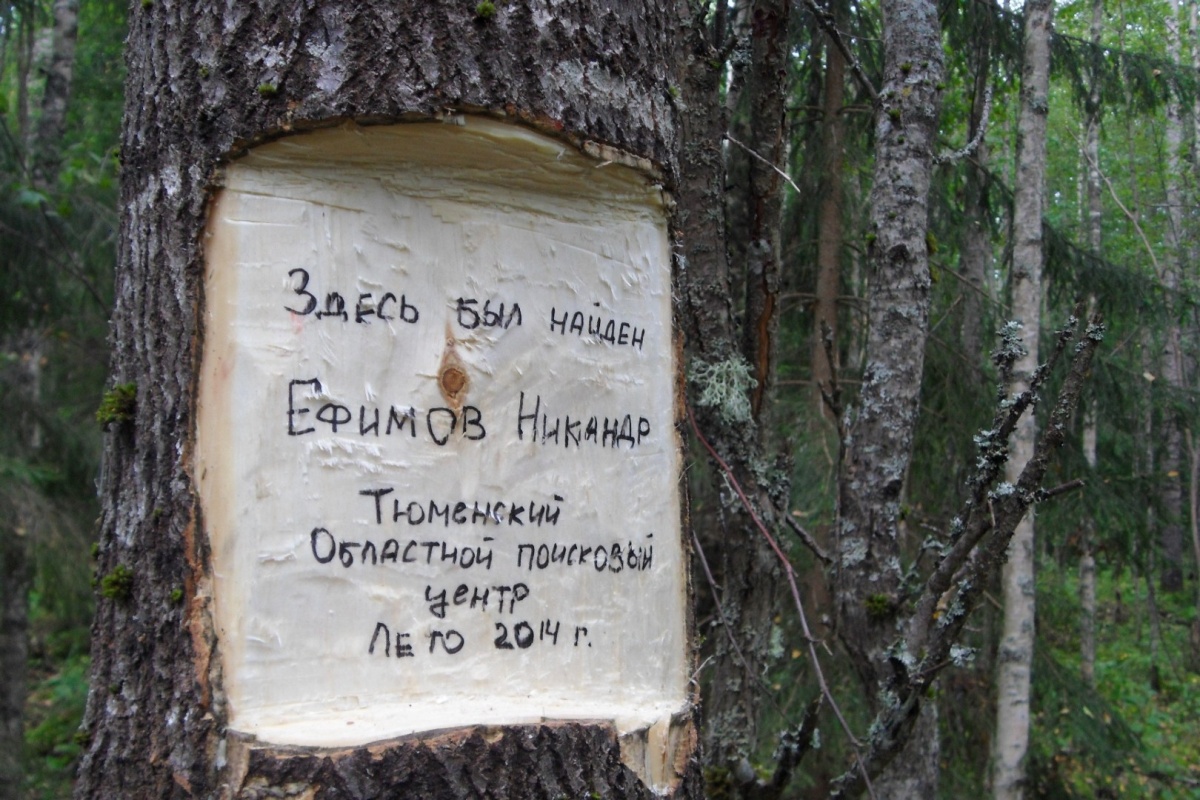 Здесь был найден
Ефимов Никандр
Тюменский
Областной поисковый
центр
Лето 2014 г.